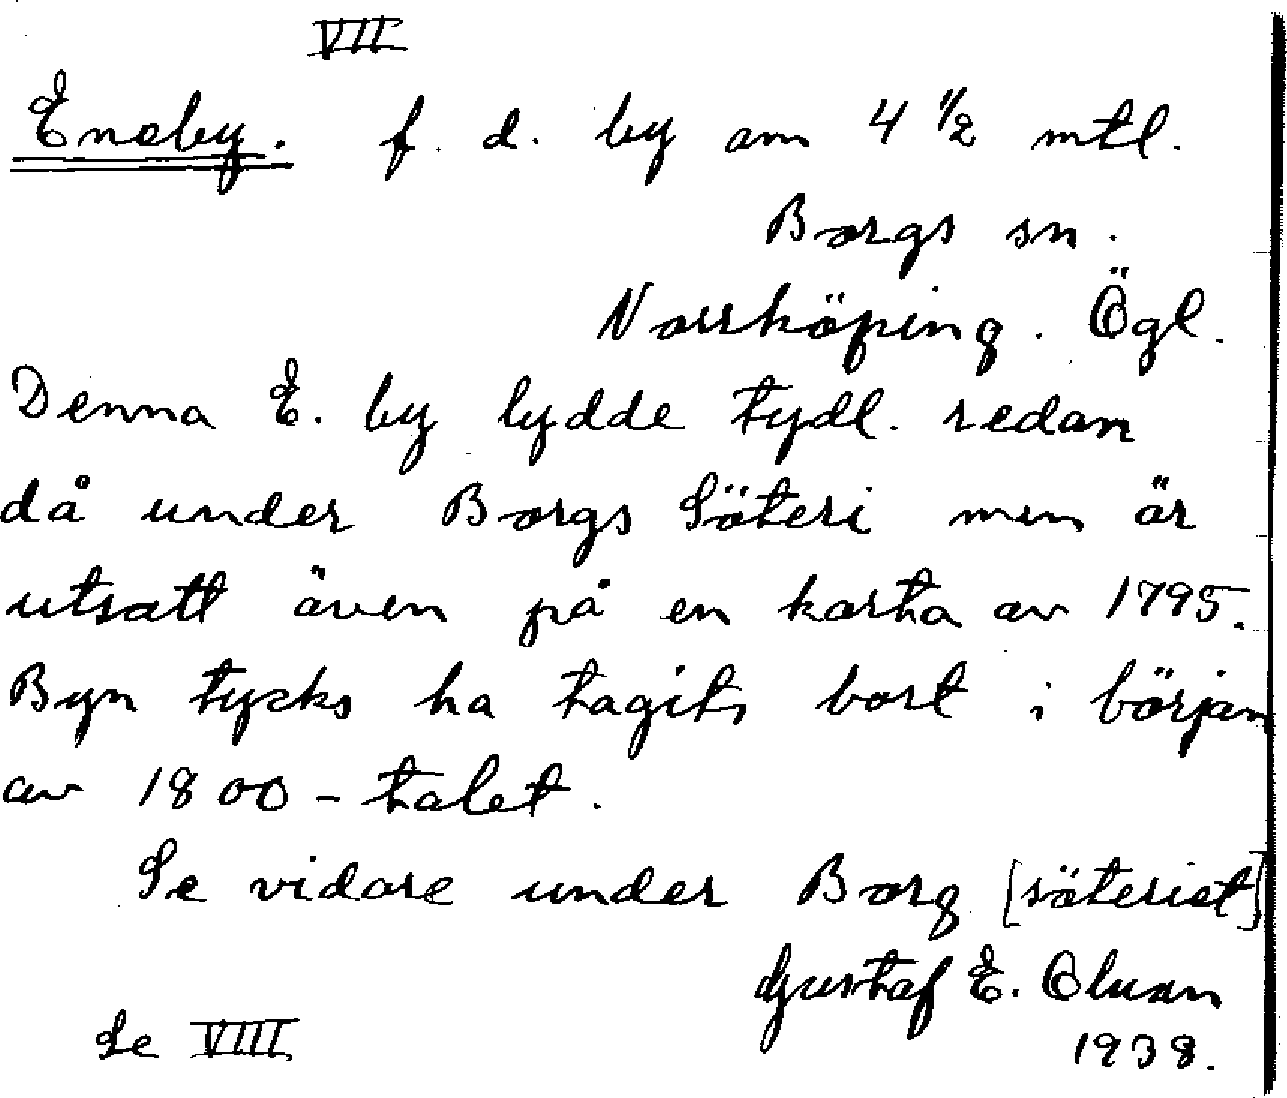 VII
Eneby. f. d. by om 4 1/2 mtl.
Borgs sn.
Norrköping. Ögl.
Denna E. by lydde tydl. redan
då under Borgs Säteri men är
utsatt även på en karta av 1795.
Byn tycks ha tagits bort i början
av 1800-talet.
Se vidare under Borg [säteriet]
Gustaf E.
Se VIII 1938.